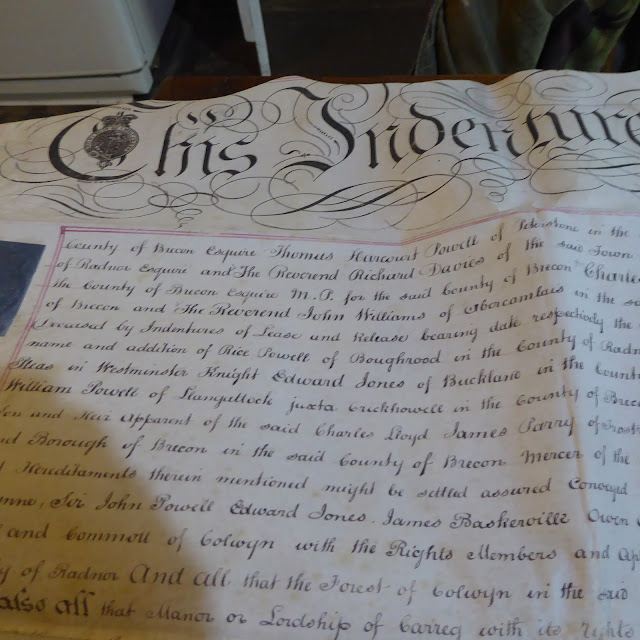 This Indenture
County of Brecon Esquire Thomas Harcourt Powell of Peterstone in the
of Radnor Esquire and The Reverend Richard Davies of the said Town
the County of Brecon Esquire M.P. for the said County of Brecon Charle
of Brecon and The Reverend John Williams of Abercamlais in the sa
Deceased by Indentures of Lease and Release bearing date respectively the
name and addition of Rice Powell of Boughrood in the County of Radn
Pleas in Westminster Knight Edward Jones of Bucklane in the Count
William Powell of Llangattock juxta Crickhowell in the County of Brec
Son and Heir apparent of the said Charles Lloyd James Parry of
nd Borough of Brecon in the said County of Brecon Mercer of the
d Hereditaments therein mentioned might be settled assured Conveyed
nne, Sir John Powell Edward Jones, James Baskerville Owen
and Commott of Colwyn with the Rights Members and Ap
ty of Radnor And All that the Forest of Colwyn in the said
also all that Manor or Lordship of Carreg with its rights